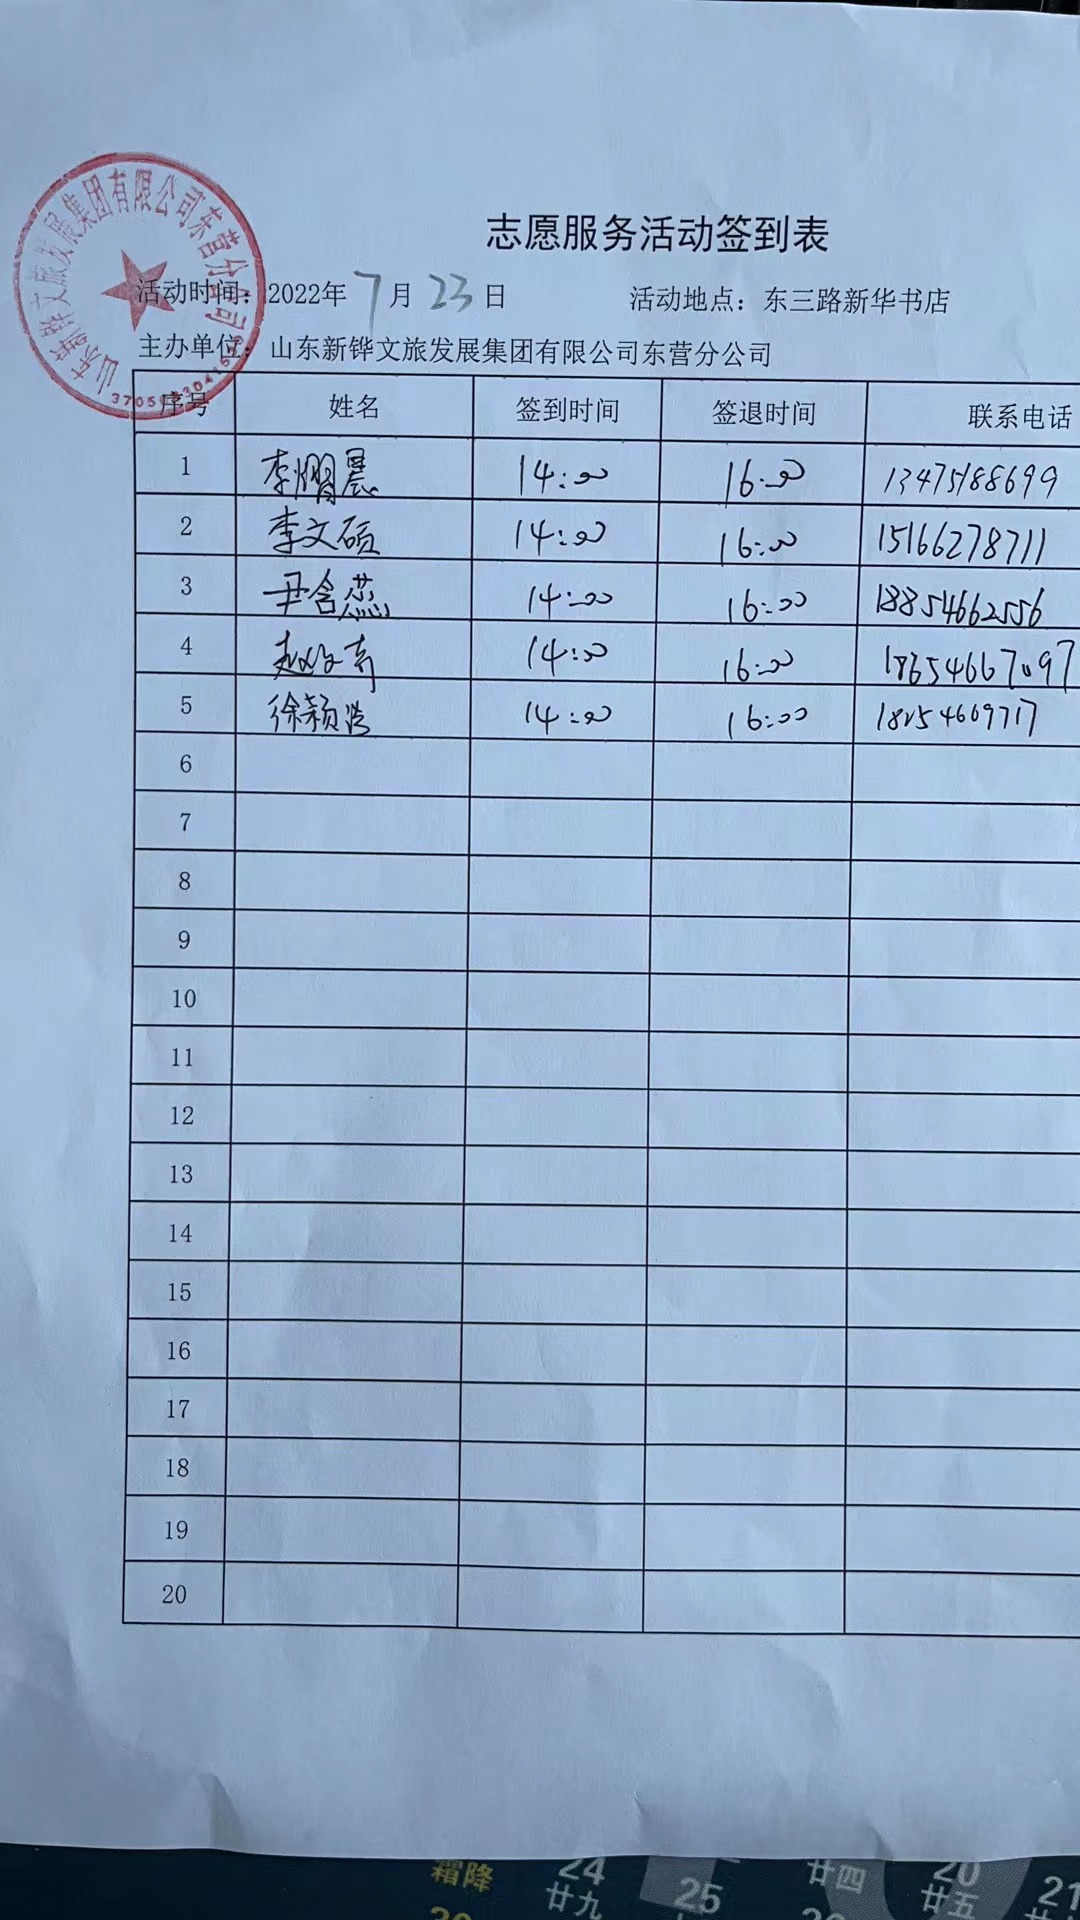 山东新铧文旅发展集团有限公司东营分公司
志愿服务活动签到表
活动时间：2022年 7 月 23 日 活动地点：东三路新华书店
主办单位：山东新铧文旅发展集团有限公司东营分公司
序号 姓名 签到时间 签退时间 联系电话
1 李熠晨 14:00 16:00 13475188699
2 李文硕 14:00 16:00 15166278711
3 尹含蕊 14:00 16:00 18854662556
4 14:00 16:00 18654667097
5 徐颖浩 14:00 16:00 18254609717
6
7
8
9
10
11
12
13
14
15
16
17
18
19
20
霜降 24 廿四 20
廿九 25 廿五 21